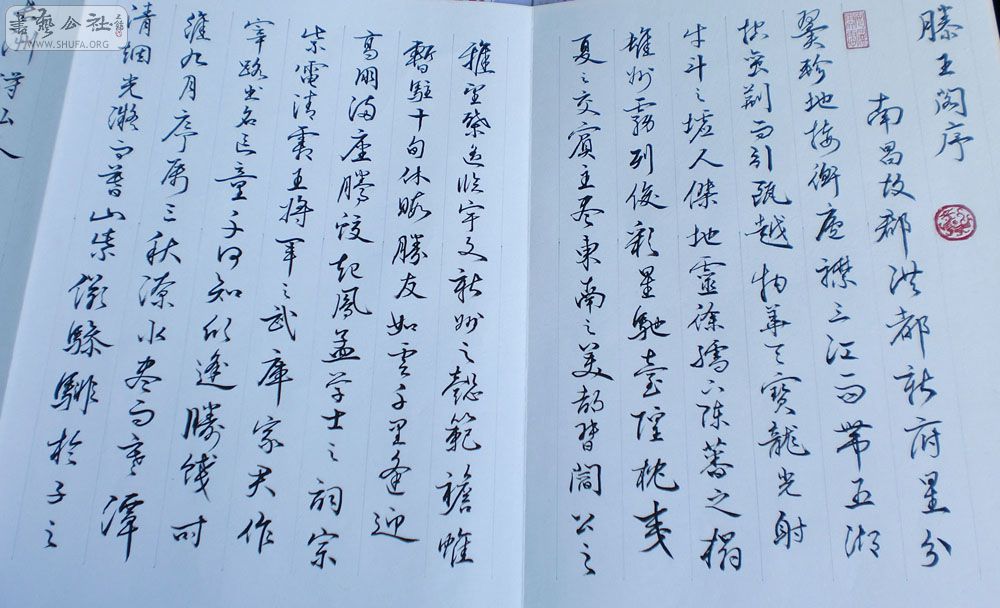 滕王阁序
南昌故郡洪都新府星分
翼軫地接衡廬襟三江而带五湖
控蛮荆而引甌越物華天寶龍光射
牛斗之墟人傑地靈徐孺下陈蕃之榻
雄州霧列俊彩星馳臺隍枕夷
夏之交賓主尽東南之美都督閻公之
雅望棨遥临宇文新州之懿範襜帷
暫駐十旬休暇勝友如雲千里逢迎
高朋满座騰蛟起鳳孟学士之詞宗
紫電清霜王将军之武庫家君作
宰路出名区童子何知躬逢勝餞时
維九月序属三秋潦水尽而寒潭
清烟光凝而暮山紫儼驂騑於子之
洲得仙人
書藝公社
WWW.SHUFA.ORG